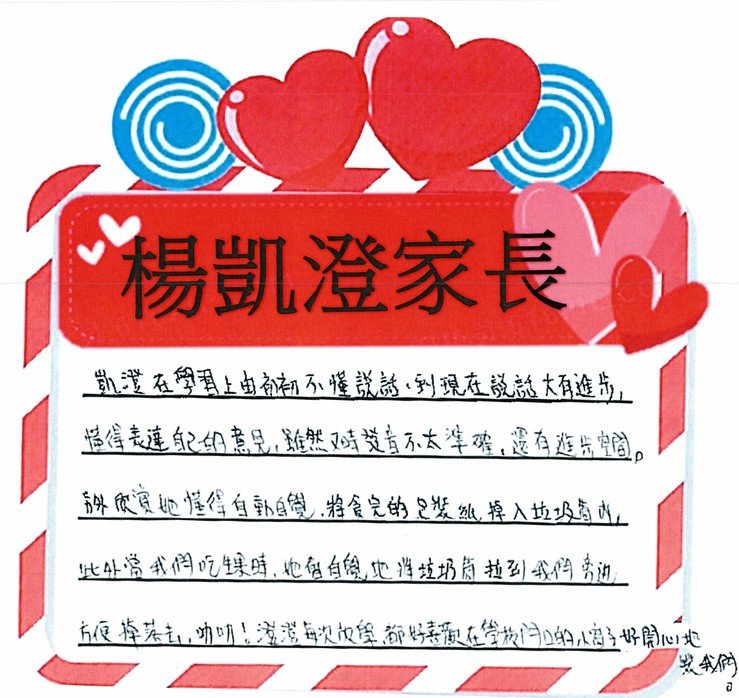 楊凱澄家長
凱澄在學習上由初初不懂說話,到現在說話大有進步,
懂得表達自己的意見,雖然又時發音不太準確,還有進步空間。
另外欣賞她懂得自動自覺,將食完的包裝紙掉入垃圾筒內,
此外當我們吃生果時,她會自覺地將垃圾筒拉到我們旁邊
方便掉落去,叻叻!澄澄每次放學都好喜歡在學校門口的小窗子好開心地
我們。